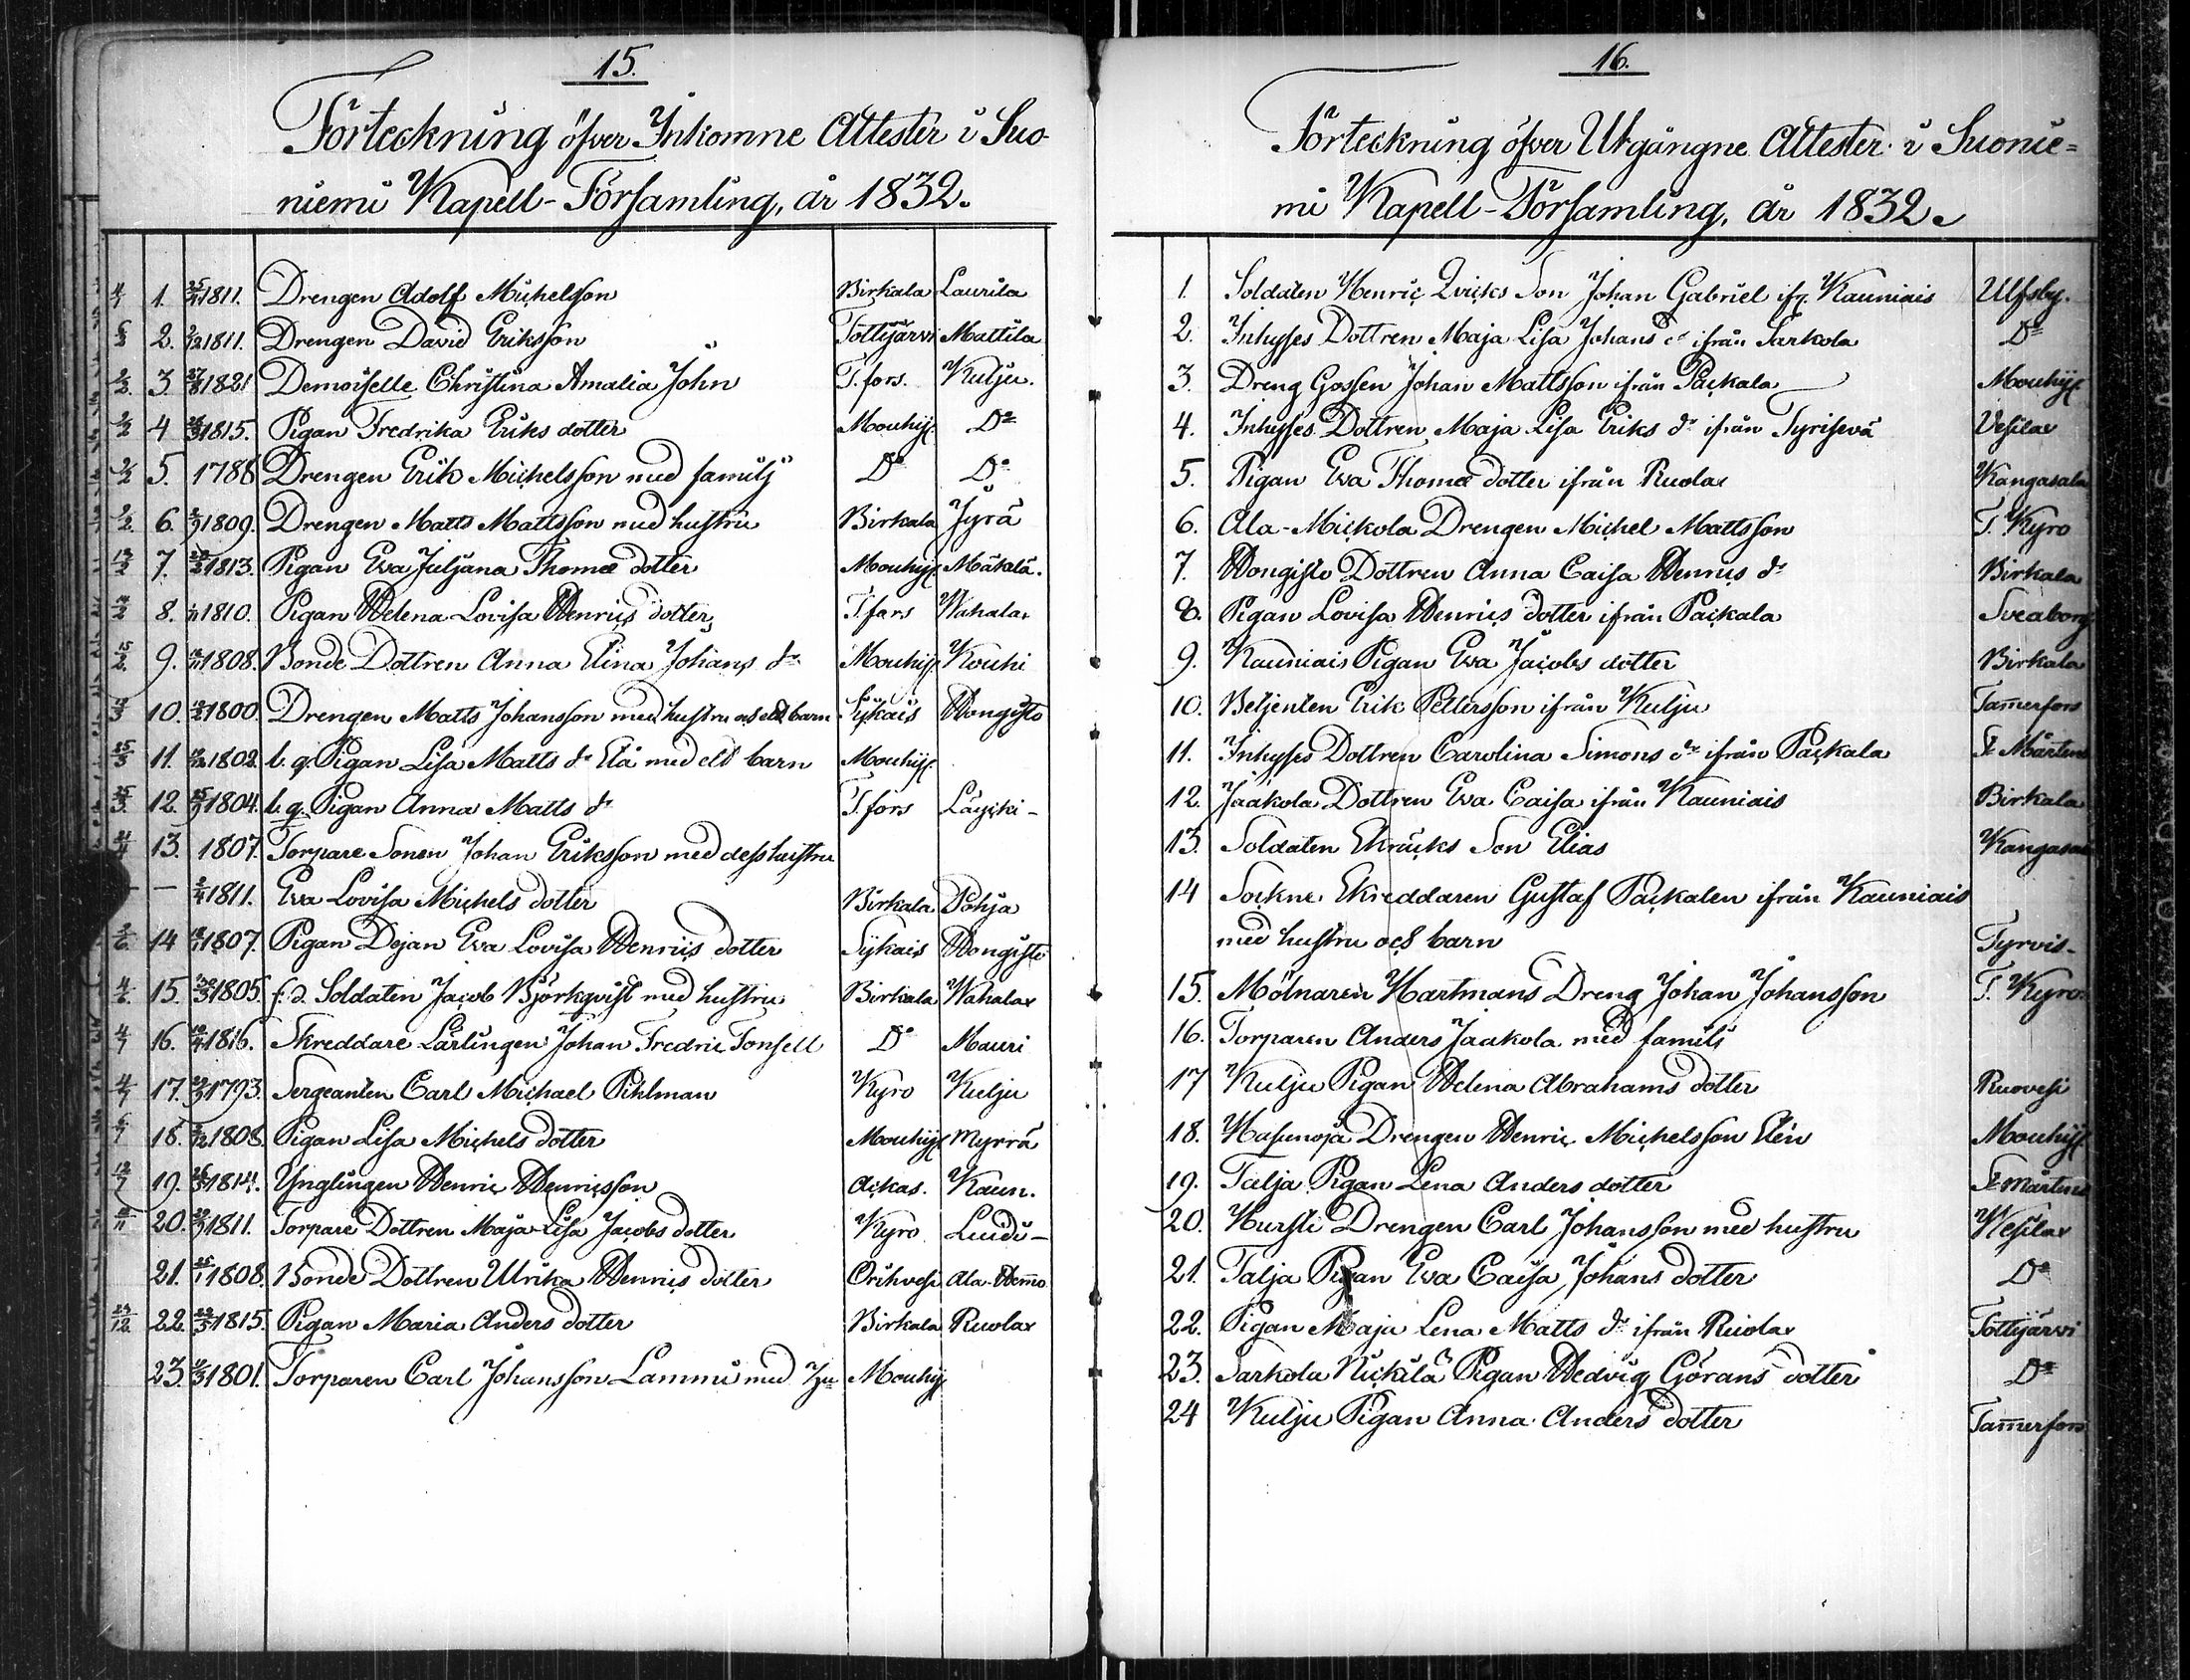 15.
Förteckning öfver Inkomne Attester i Suo-
niemi Kapell-Församling, år 1832.
1. 1811. Drengen Adolf Michelsson Birkala Laurila
2. 1811. Drengen David Eriksson Tottijärvi Mattila
3 1821 Demoiselle Christina Amalia John T.fors. Kulju.
4 1815. Pigan Fredrika Eriks dotter Mouhij. Do
5. 1788 Drengen Erik Michelsson med familj Do Do
6. 1809. Drengen Matts Mattsson med hustru Birkala Jyrä
7. 1813. Pigan Ewa Juljana Thomæ dotter Mouhij. Mäkelä.
8. 1810. Pigan Helena Lovisa Henrics dotter T.fors Wahalax
9. 1808. Bonde Dottren Anna Elina Johans dr Mouhij. Kouhi
10. 1800. Drengen Matts Johansson med hustru och ett barn Sykäis Hongisto
11. 1802. b. q. Pigan Lisa Matts dr Elå med ett barn Mouhij.
12. 1804. b. q. Pigan Anna Matts dr T.fors
13. 1807. Torpare Sonen Johan Eriksson med dess hustru
— 1811. Ewa Lovisa Michels dotter Birkala Pohja
14 1807. Pigan Dejan Ewa Lovisa Henrics dotter Sykäis Hongisto
15. 1805. f. d. Soldaten Jacob Björkqvist med hustru Birkala Wahalax
16. 1816. Skreddare Lärlingen Johan Fredric Tonsell Do Mauri
17. 1793. Sergeanten Carl Michael Pihlman Kyro Kulju
18. 1808 Pigan Lisa Michels dotter Mouhij. Myrrä
19. 1814. Ynglingen Henric Henricsson Ackas. Kaun.
20. 1811. Torpare Dottren Maja Lisa Jacobs dotter Kyro Luidi-
21. 1808. Bonde Dottren Ulrika Henrics dotter Orihvesi Ala-Hemo
22. 1815. Pigan Maria Anders dotter Birkala Ruolax
23. 1801. Torparen Carl Johansson Lammi med Mouhij
16.
Förteckning öfver Utgångne Attester i Suonie=
mi Kapell-Församling, år 1832.
1. Soldaten Henric Qvicks Son Johan Gabriel ifr. Kauniais Ulfsby.
2. Inhyses Dottren Maja Lisa Johans dr ifrån Sarkola Do
3. Dreng Gossen Johan Mattsson ifrån Packala Mouhij
4. Inhyses Dottren Maja Lisa Eriks dr ifrån Tyrisevä Vesilax
5. Pigan Ewa Thomæ dotter ifrån Ruolax Kangasala
6. Ala-Mickola Drengen Michel Mattsson T. Kyro
7. Hongisto Dottren Anna Caisa Henrics dr Birkala
8. Pigan Lovisa Henrics dotter ifrån Packala Sveaborg
9. Kauniais Pigan Ewa Jacobs dotter Birkala
10. Betjenten Erik Pettersson ifrån Kulju Tamerfors
11. Inhyses Dottren Carolina Simons dr ifrån Packala St Mårtens
12. Jaakola Dottren Ewa Caisa ifrån Kauniais Birkala
13. Soldaten Skräcks Son Elias Kangasala
14 Sockne Skreddaren Gustaf Packalen ifrån Kauniais
med hustru och barn Tyrvis-
15. Mölnaren Hartmans Dreng Johan Johansson T. Kyro
16. Torparen Anders Jaakola med familj
17 Kulju Pigan Helena Abrahams dotter Ruovesi
18. Hapunoja Drengen Henric Michelsson Elén Mouhij
19. Talja Pigan Lena Anders dotter St Mårtens
20. Hursti Drengen Carl Johansson med hustru Wesilax
21. Talja Pigan Ewa Caisa Johans dotter Do
22. Pigan Maja Lena Matts dr ifrån Ruolax Tottijärvi
23. Sarkola Nickilä Pigan Hedvig Görans dotter Do
24 Kulju Pigan Anna Anders dotter Tamerfors